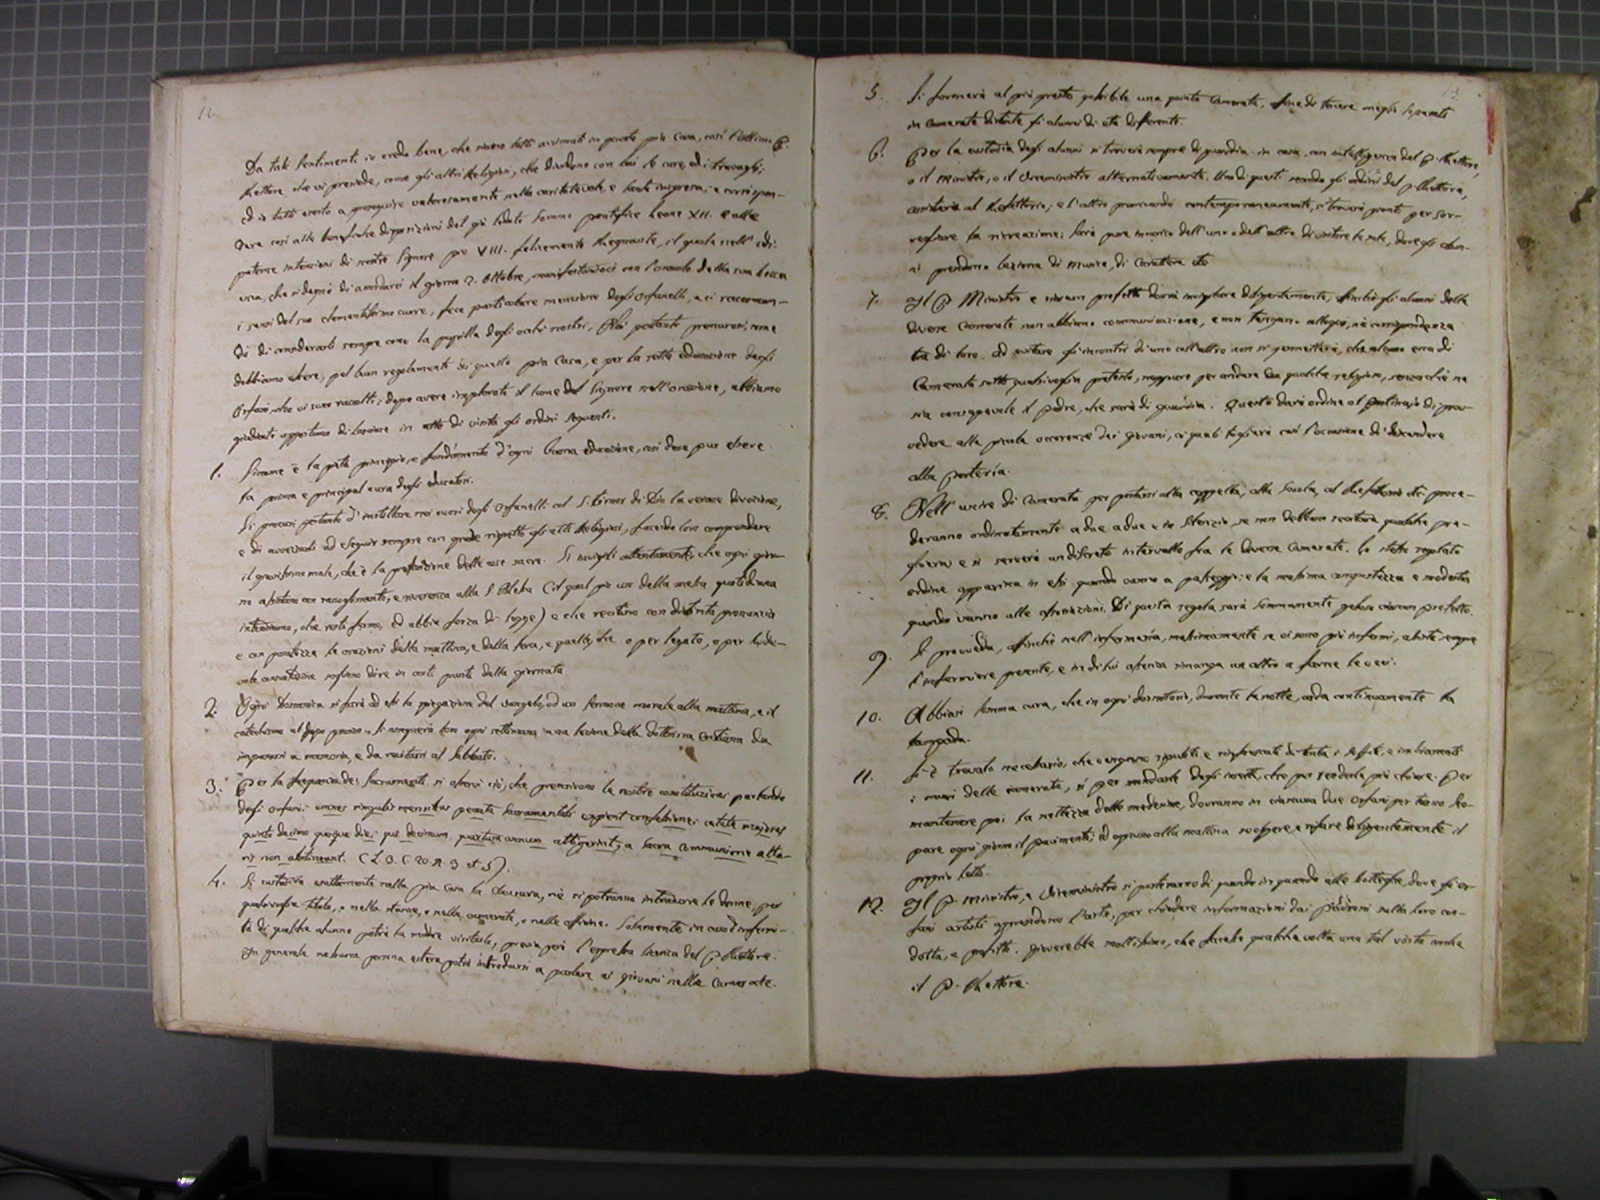 12.
Da tali sentimenti io credo bene, che siano tutti animati in questa pia Casa, così l'ottimo P.
Rettore che vi presiede, come gli altri Religiosi, che dividono con lui le cure, ed i travagli;
ed io tutti esorto a proseguire valorosamente nella caritatevole, e santa impresa; e corrispon-
dere così alle benefiche disposizioni del già lodato Sommo Pontefice Leone XII. e alle
paterne intenzioni di nostro Signore Pio VIII. felicemente Regnante, il quale nell'udi-
enza, che si degnò di accordarci il giorno 2. Ottobre, manifestandoci con l'oracolo della sua bocca
i sensi del suo clementissimo cuore, fece particolare menzione degli Orfanelli, e ci raccoman-
dò di considerarli sempre come la pupilla degli occhi nostri. Noi pertanto premurosi, come
dobbiamo essere, pel buon regolamento di questa pia Casa, e per la retta educazione degli
Orfani, che vi sono raccolti; dopo avere implorato il lume del Signore nell'orazione, abbiamo
giudicato opportuno di lasciare in atto di visita gli ordini seguenti.
1. Siccome è la pietà principio, e fondamento d'ogni buona educazione, così deve pur essere
la prima e principal cura degli educatori.
Si procuri pertanto d'instillare nei cuori degli Orfanelli col S. timor di Dio la verace divozione,
e di avvezzarli ad eseguir sempre con grande rispetto gli atti Religiosi, facendo loro comprendere
il gravissimo male, che è la profanazione delle cose sacre. Si invigili attentamente, che ogni gior-
no assistano con raccoglimento, e riverenza alla S. Messa (il qual pio uso della messa quotidiana
intendiamo, che resti fermo, ed abbia forza di legge) e che recitino con distinta pronunzia
e con posatezza le orazioni della mattina, e della sera, e quelle, che o per legato, o per lode-
vole consuetudine sogliono dire in certi punti della giornata.
2. Ogni Domenica si farà ad essi la spiegazione del Vangelo, od un sermone morale alla mattina, e il
catechismo al dopo pranzo. Si assegnerà loro ogni settimana una lezione della dottrina Cristiana da
impararsi a memoria, e da recitarsi al Sabbato.
3. Per la frequenza dei Sacramenti si osservi ciò, che prescrivono le nostre constituzioni parlando
degli Orfani: omnes singulis mensibus peccata Sacramentali expient confessione: aetate majores
quinto decimo quoque die; qui decimum quartum annum attigerint, a sacra communione alta-
ris non abstineant. (L. 3. C. 20. N. 3 et 5).
4. Si custodisca esattamente nella pia Casa la Clausura, nè si potranno introdurre le donne, per
qualsivoglia titolo, o nelle stanze, o nelle camerate, o nelle officine. Solamente in caso d'infermi-
tà di qualche alunno potrà la madre visitarlo, previa però l'espressa licenza del P. Rettore.
In generale nessuna persona estera potrà introdursi a parlare ai giovani nelle Camerate.
13
5. Si formerà al più presto possibile una quinta Camerata, affine di tenere meglio separati
in Camerate distinte gli alunni di età differente.
6. Per la custodia degli alunni si troverà sempre di guardia in casa, con intelligenza del P. Rettore,
o il Ministro, o il Viceministro alternativamente. Uno di questi secondo gli ordini del P. Rettore,
assisterà al Refettorio; e l'altro pranzando contemporaneamente, si troverà pronto per sor-
vegliare la ricreazione; sarà pure incarico dell'uno o dell'altro di visitare le sale, dove gli alun-
ni prendono lezione di musica, di Carattere etc.
7. Il P. Ministro e ciascun prefetto dovrà invigilare diligentemente, affinchè gli alunni delle
diverse Camerate non abbiano communicazione, e non tengano colloqui, nè corrispondenza
tra di loro. Ad evitare gli incontri di uno coll'altro non si permetterà, che alcuno esca di
Camerata sotto qualsivoglia pretesto, neppure per andare da qualche religioso, senza che ne
sia consapevole il Padre, che sarà di guardia. Questo darà ordine al Portinajo di prov-
vedere alle piccole occorrenze dei giovani, ai quali toglierà così l'occasione di discendere
alla porteria.
8. Nell'uscire di Camerata per portarsi alla cappella, alla Scuola, al Refettorio etc. proce-
deranno ordinatamente a due a due e in silenzio, se non debbono recitare qualche pre-
ghiera: e si serverà un discreto intervallo fra le diverse Camerate. Lo stesso regolato
ordine apparisca in essi quando vanno a passeggio; e la massima compostezza e modestia
quando vanno alle associazioni. Di questa regola sarà sommamente geloso ciascun prefetto.
9. Si provveda, affinchè nell'infermeria, massimamente se vi sono più infermi, assista sempre
l'infermiere presente, e in di lui assenza rimanga un altro a farne le veci.
10. Abbiasi somma cura, che in ogni dormitorio, durante la notte, arda continuamente la
lampada.
11. Si è trovato necessario, che vengano ripuliti e rinfrescati di tinta i soffitti, e imbiancati
i muri delle camerate, sì per mondarle dagli insetti, che per renderle più chiare. Per
mantenere poi la nettezza delle medesime, dovranno in ciascuna due Orfani per turno sco-
pare ogni giorno il pavimento; ed ognuno alla mattina svolgere, e rifare diligentemente il
proprio letto.
12. Il P. Ministro, e Viceministro si porteranno di quando in quando alle botteghe, dove gli or-
fani artisti apprendono l'arte, per chiedere informazioni dai Padroni sulla loro con-
dotta, e profitto. Gioverebbe moltissimo, che facesse qualche volta una tal visita anche
il P. Rettore.